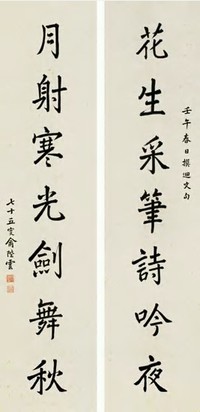 花生采筆詩吟夜
壬午春日撰迴文句
月射寒光劍舞秋
七十五叟俞陛雲